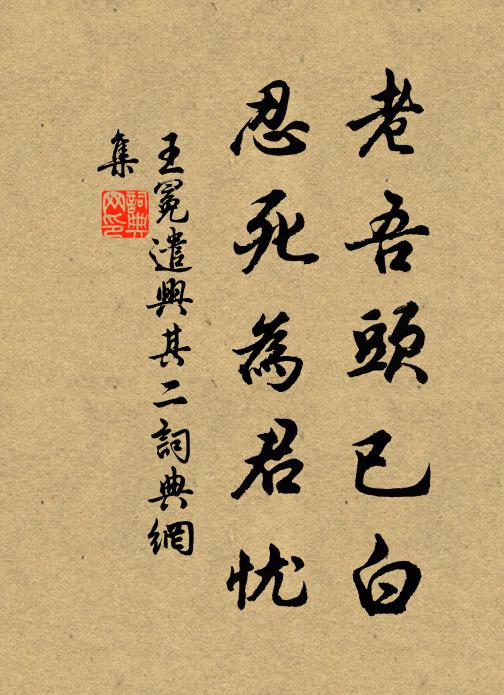 老吾頭已白
忍死為君忧
王冕遣興其二詞典網
集
詞典
网印